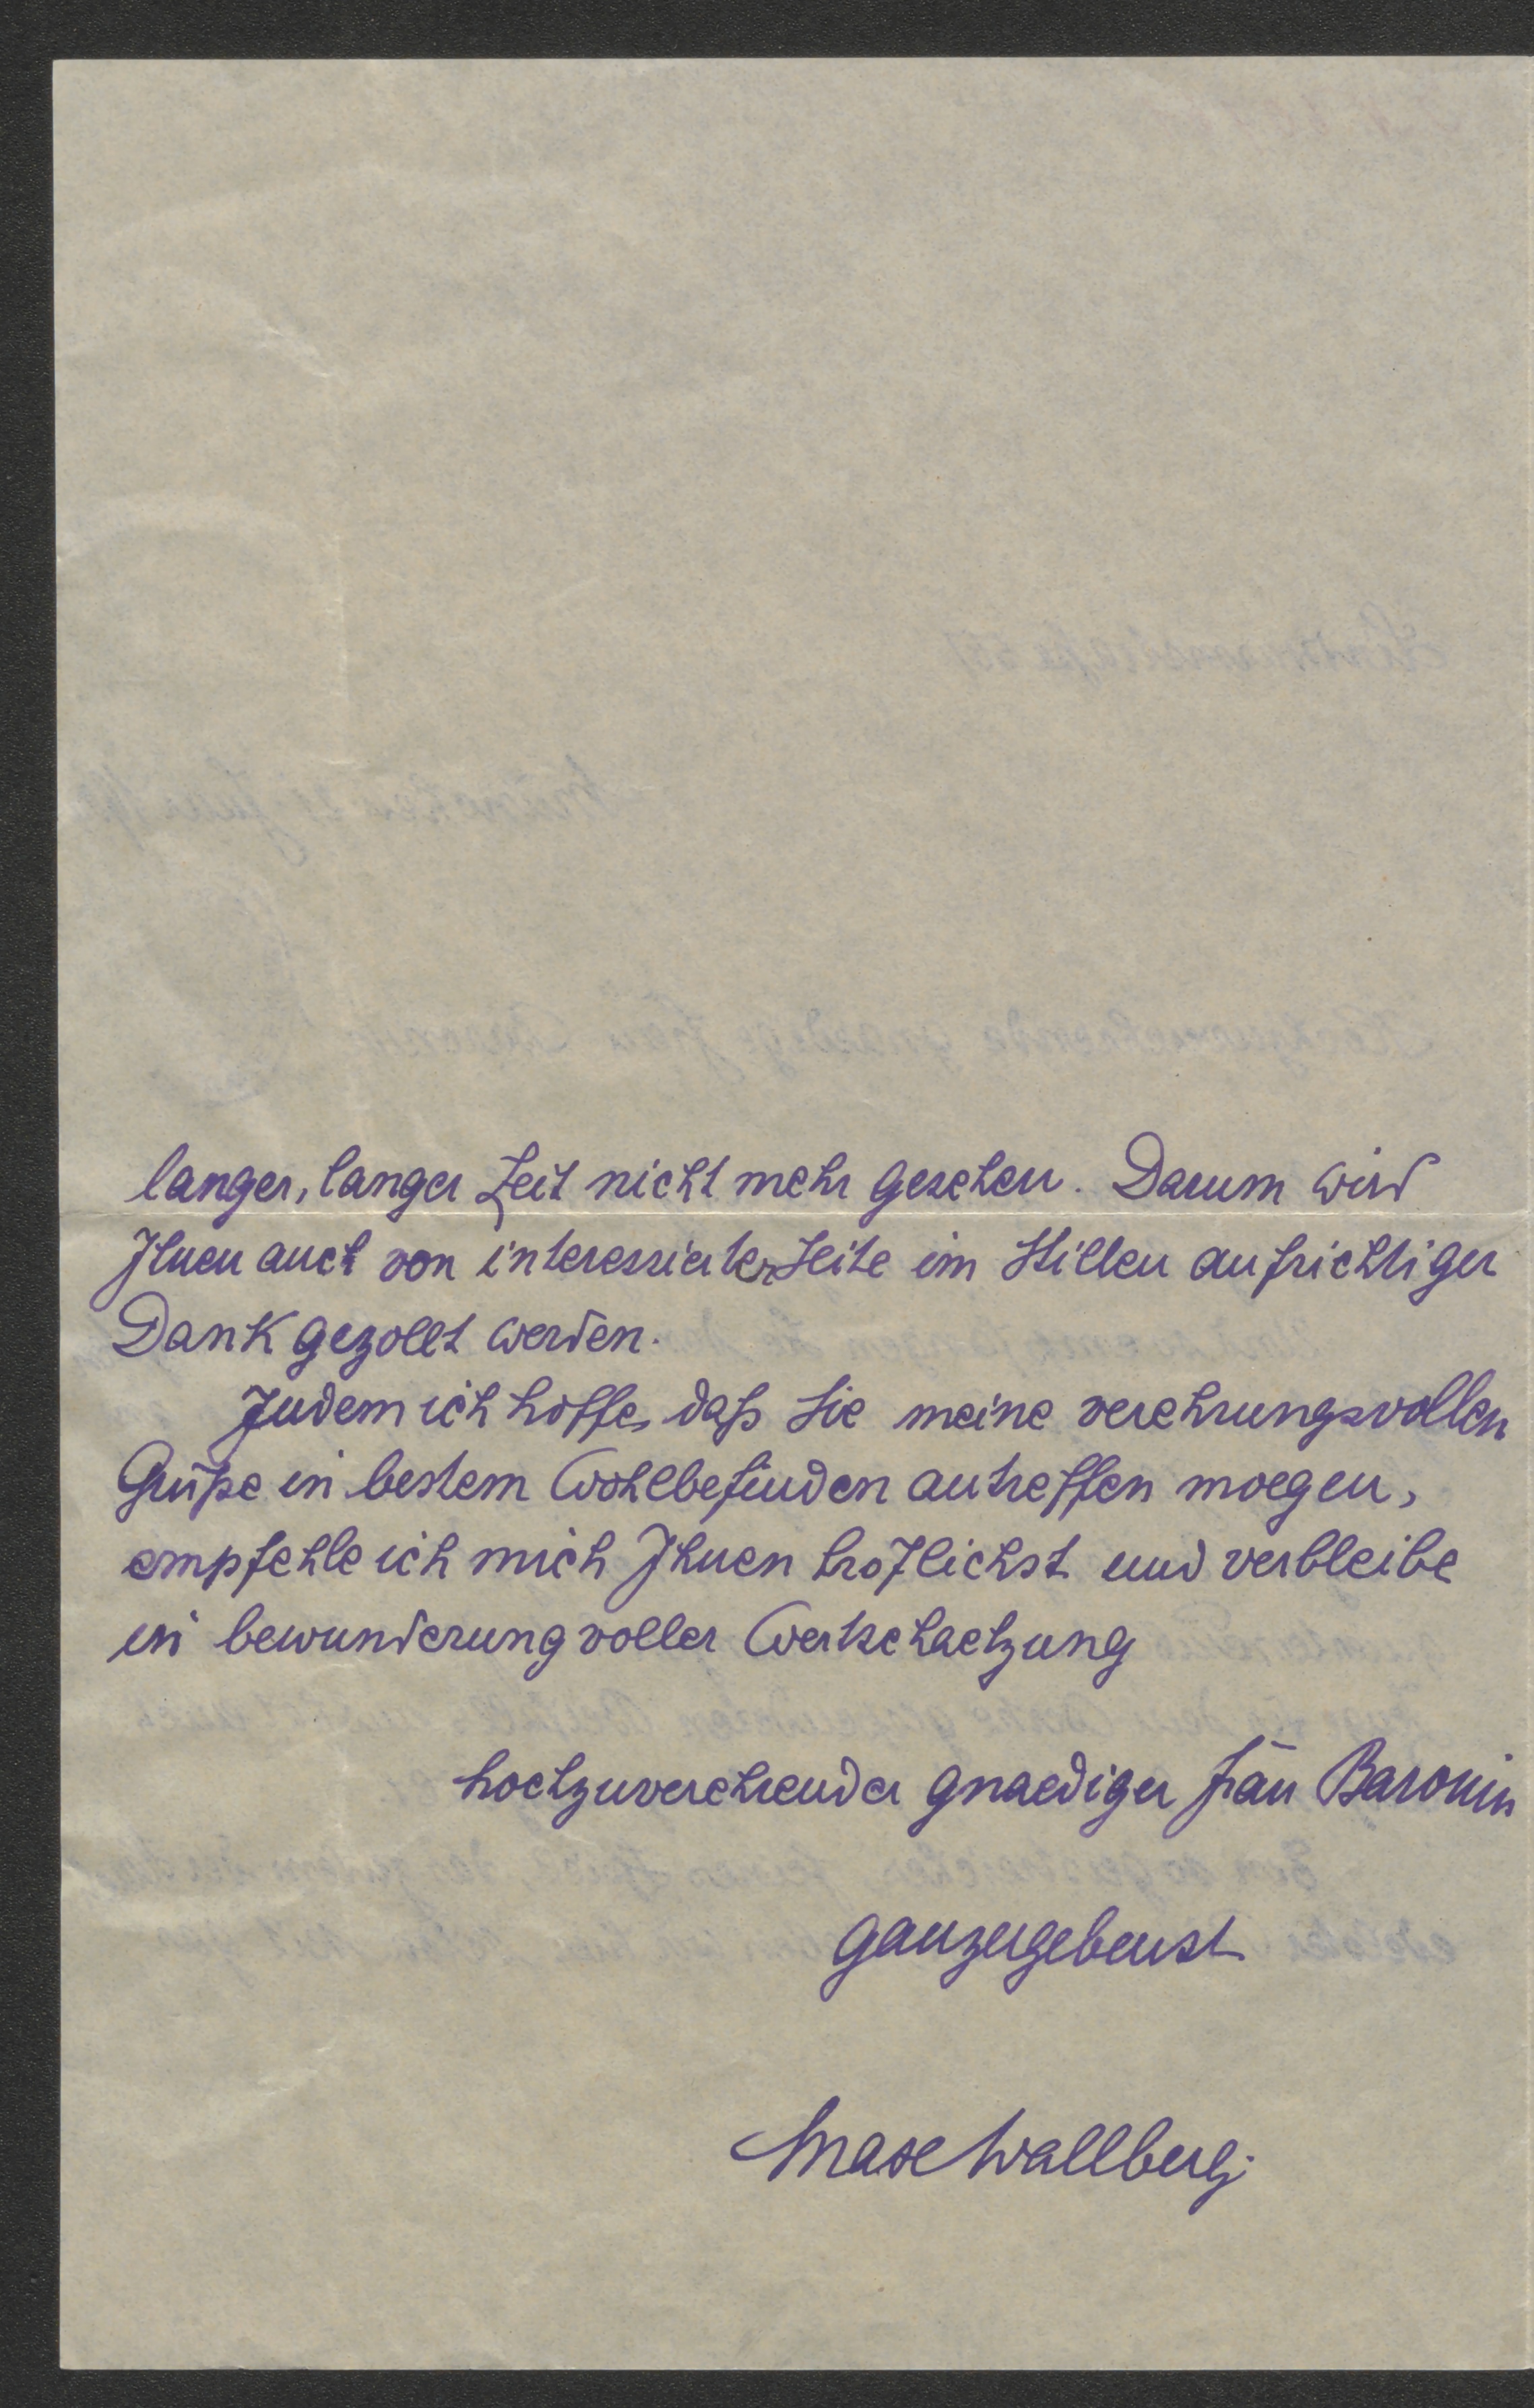 langer, langer Zeit nicht mehr gesehen. Darum wird
Ihnen auch von interessierter Seite im Stillen aufrichtiger
Dank gezollt werden.
Indem ich hoffe, daß Sie meine verehrungsvollen
Grüße in bestem Wohlbefinden antreffen moegen,
empfehle ich mich Ihnen hoflichst und verbleibe
in bewunderungvoller Wertschaetzung
hochzuverehrender gnaediger Frau Baronin
ganzergebenst
Max Wallberg